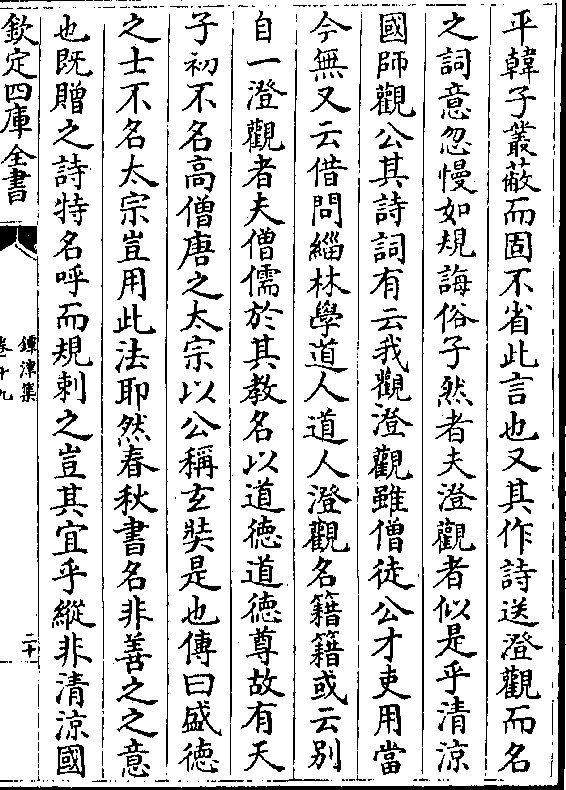 平韓子叢蔽而固不省此言也又其作詩送澄觀而名
之詞意忽慢如規誨俗子然者夫澄觀者似是乎清涼
國師觀公其詩詞有云我觀澄觀雖僧徒公才吏用當
今無又云借問緇林學道人道人澄觀名籍籍或云別
自一澄觀者夫僧儒於其教名以道徳道徳尊故有天
子初不名高僧唐之太宗以公稱玄奘是也傳曰盛徳
之士不名太宗豈用此法耶然春秋書名非善之之意
也既贈之詩特名呼而規刺之豈其宜乎縱非清涼國
欽定四庫全書
鐔津集
卷十九
二十